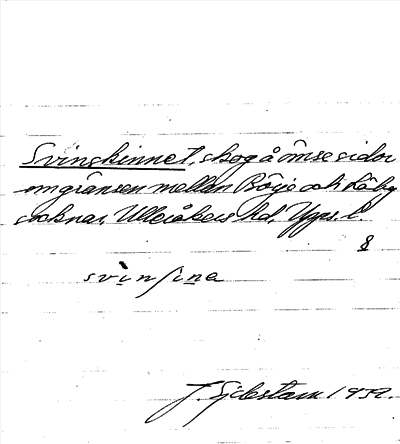 Svinskinnet, skog å ömse sidor
om gränsen mellan Börje och Läby
socknar, Ulleråkers hd, Upps. l.
8
svinʃina
Sjöbstam 1932.